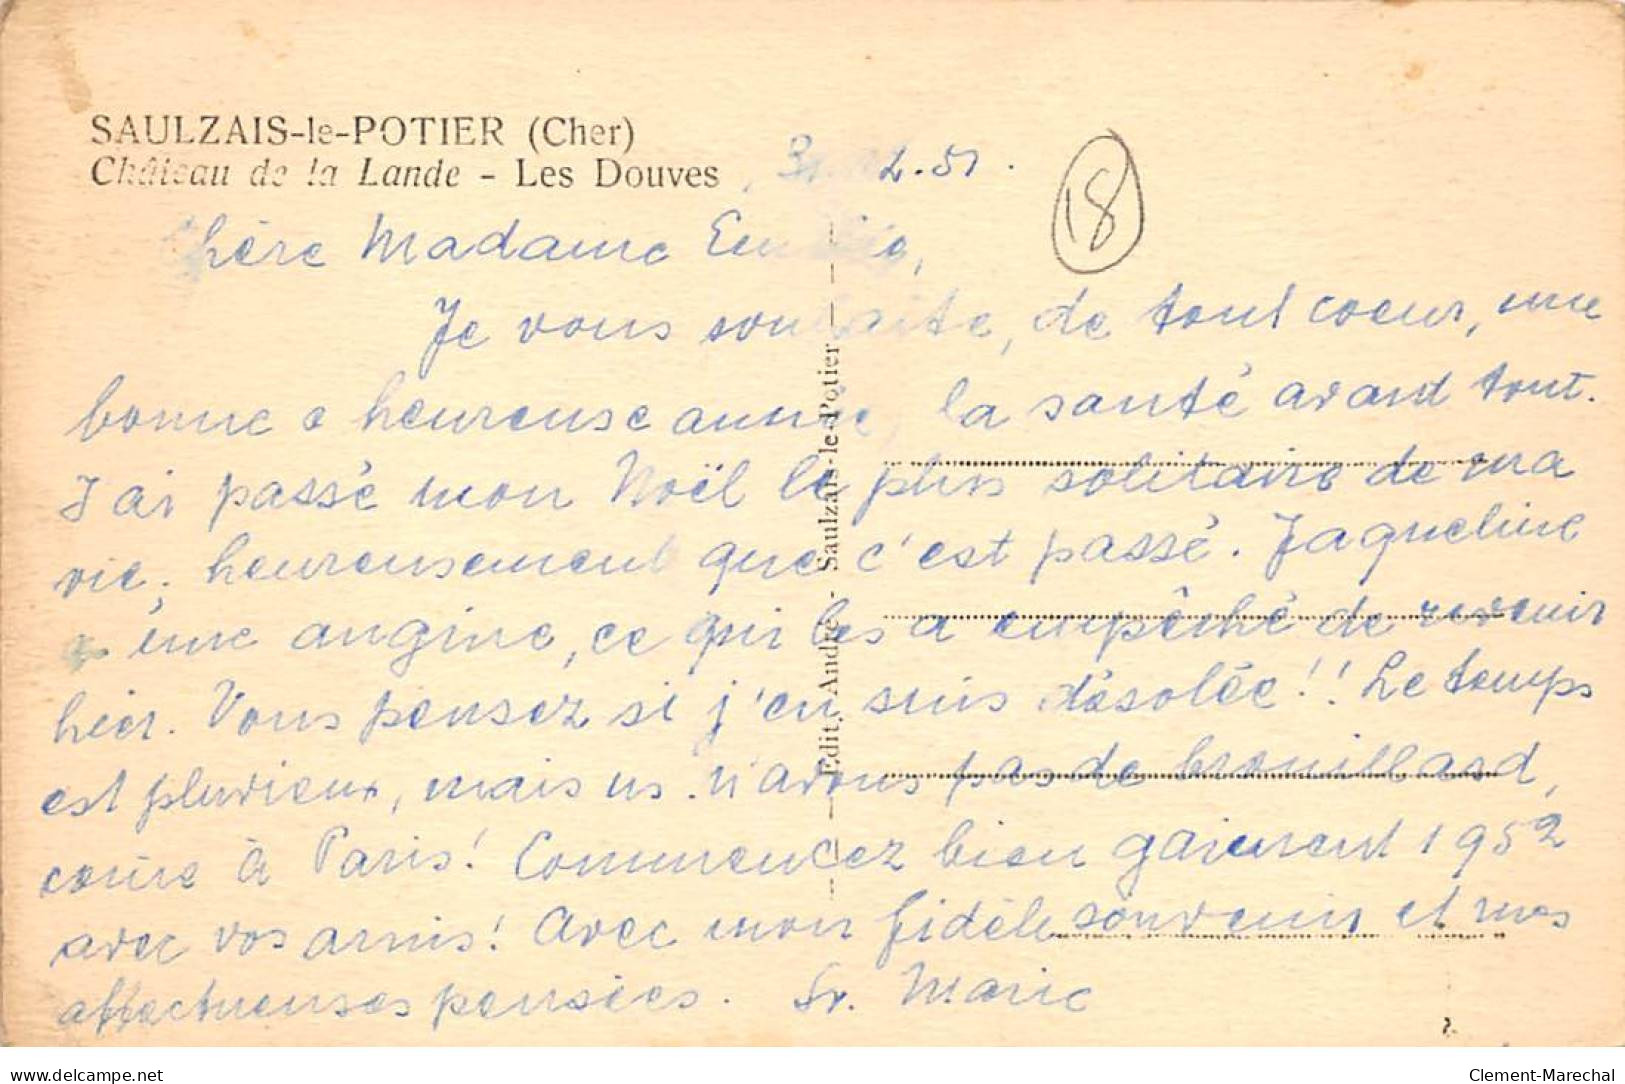 SAULZAIS-le-POTIER (Cher)
Château de la Lande - Les Douves
2.51.
18
Chère Madame
Je vous souhaite, de tout coeur, une
bonne e heureuse année, la santé avant tout.
J'ai passé mon Noël le plus solitaire de ma
vie, heureusement que c'est passé. Jaqueline
une angine, ce qui les a empêché de revenir
hier. Vous pensez si j'en suis désolée!! Le temps
est pluvieux, mais ns. n'avons pas de brouillard,
come à Paris! Commencez bien gaiement 1952
avec vos amis! Avec mon fidèle souvenir et mes
affectueuses pensées. Sr. Marie
Edit. André - Saulzais-le-Potier
www.delcampe.net
Clement-Marechal